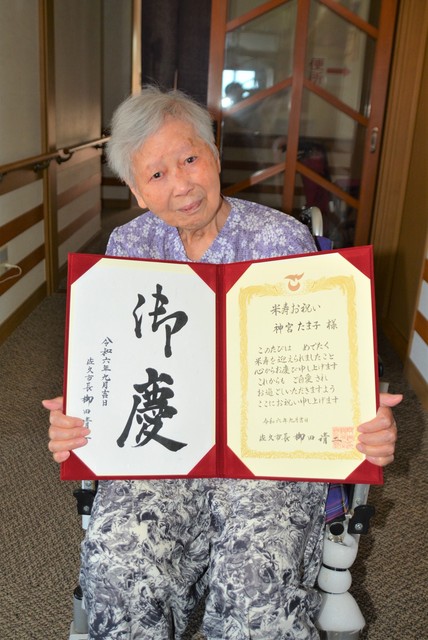 御慶
令和六年九月吉日
佐久市長 栁田清
米寿お祝い
神宮たま子 様
このたびは めでたく
米寿を迎えられましたこと
心からお慶び申し上げます
これからも ご自愛され
お過ごしいただきますよう
ここにお祝い申し上げます
令和六年九月吉日
佐久市長 栁田清二